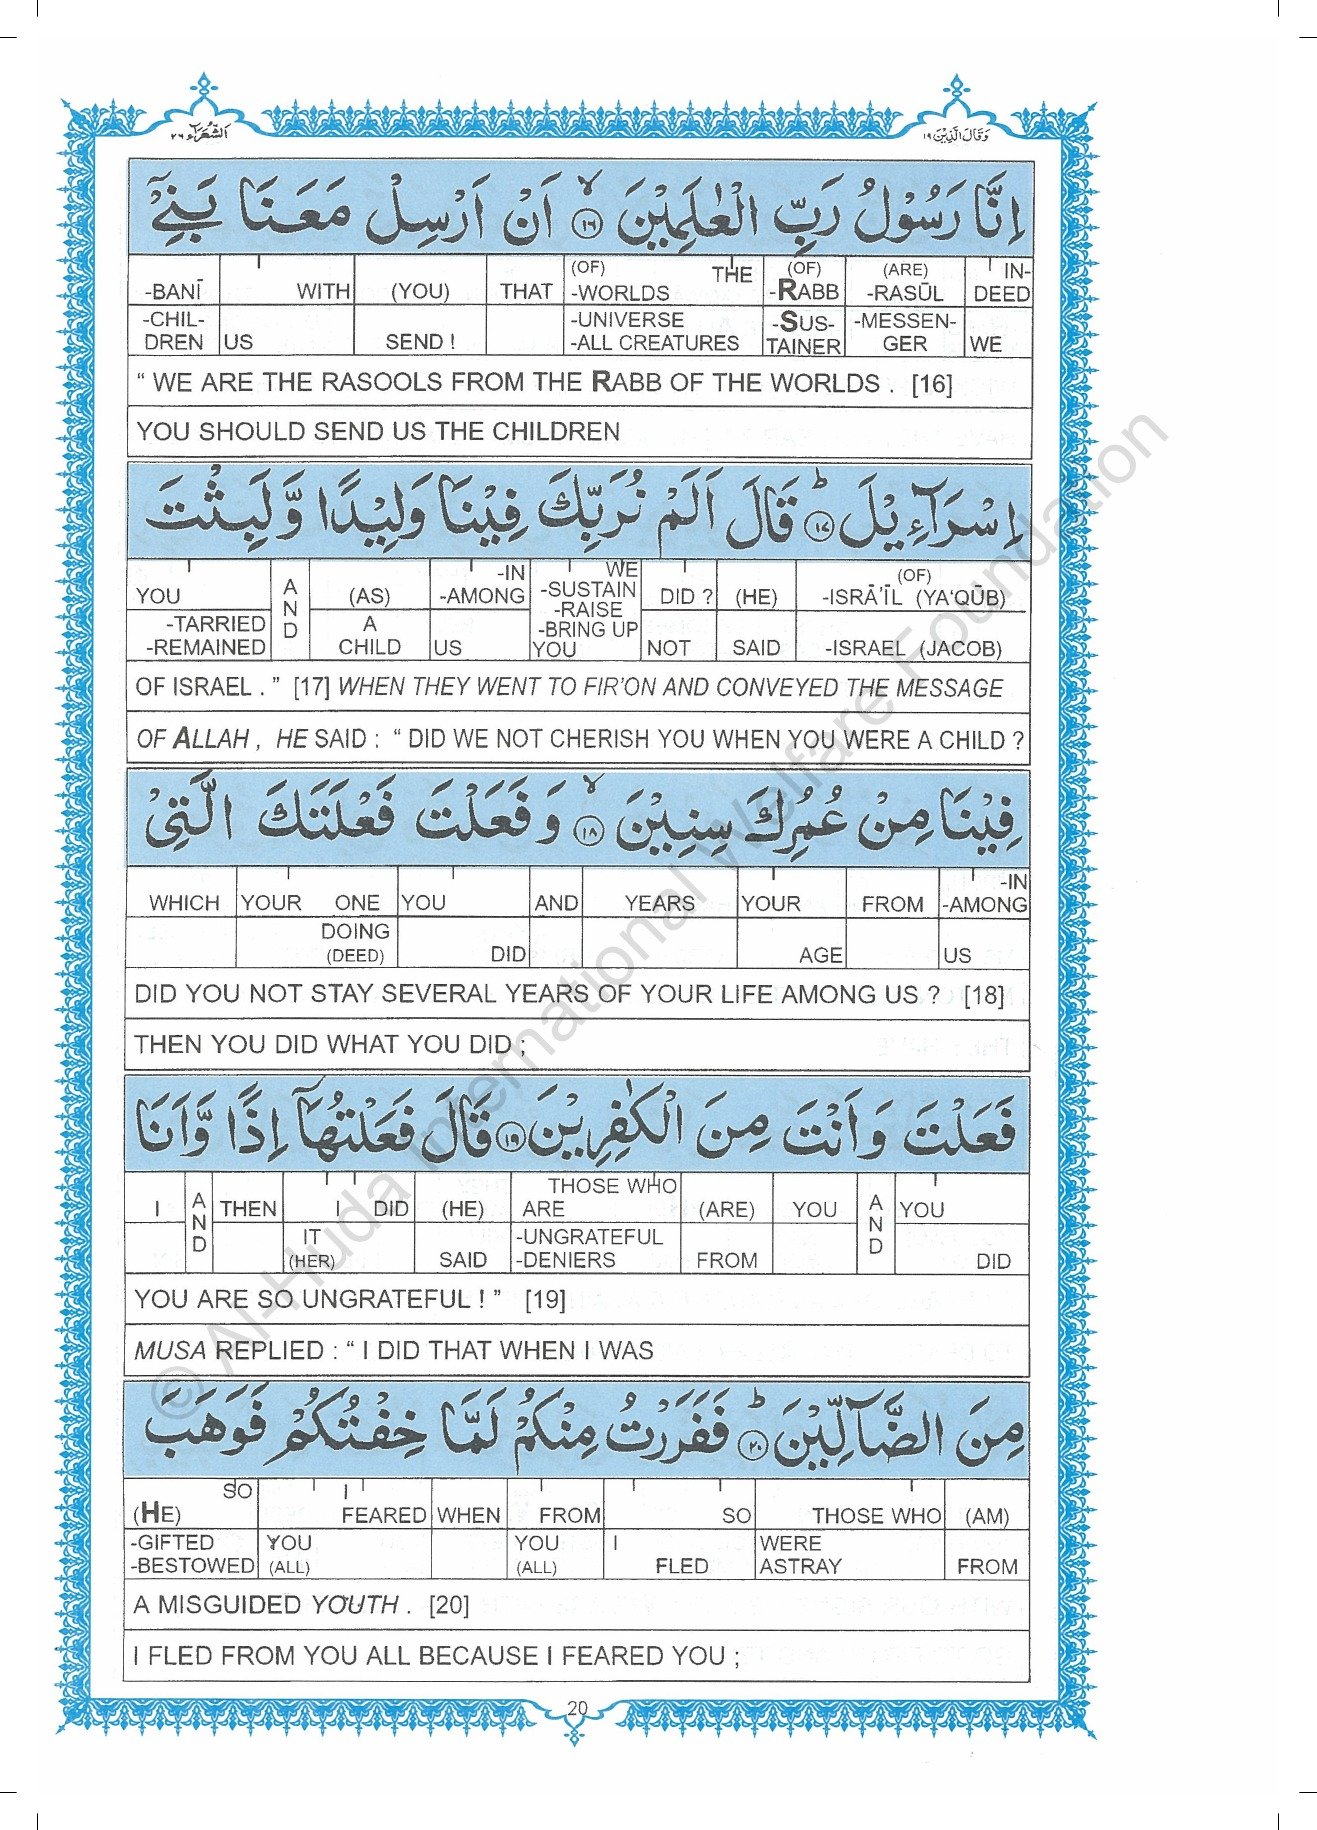 وَقَالَ الَّذِيْنَ ١٩
اَلشُّعَرَآء ٢٦
اِنَّا رَسُوْلُ رَبِّ الْعٰلَمِيْنَ ۙ ١٦ اَنْ اَرْسِلْ مَعَنَا بَنِيْٓ
-BANĪ WITH (YOU) THAT (OF) -WORLDS THE (OF) -RABB (ARE) -RASŪL IN-DEED
-CHIL-DREN US SEND ! -UNIVERSE -ALL CREATURES -SUS-TAINER -MESSEN-GER WE
“ WE ARE THE RASOOLS FROM THE RABB OF THE WORLDS . [16]
YOU SHOULD SEND US THE CHILDREN
اِسْرَآءِيْلَ ؕ ١٧ قَالَ اَلَمْ نُرَبِّكَ فِيْنَا وَلِيْدًا وَّلَبِثْتَ
YOU AND (AS) -IN -AMONG WE -SUSTAIN -RAISE -BRING UP DID ? (HE) (OF) -ISRĀ’ĪL (YA‘QŪB)
-TARRIED -REMAINED A CHILD US YOU NOT SAID -ISRAEL (JACOB)
OF ISRAEL . ” [17] WHEN THEY WENT TO FIR’ON AND CONVEYED THE MESSAGE
OF ALLAH , HE SAID : “ DID WE NOT CHERISH YOU WHEN YOU WERE A CHILD ?
فِيْنَا مِنْ عُمُرِكَ سِنِيْنَ ۙ ١٨ وَفَعَلْتَ فَعْلَتَكَ الَّتِيْ
WHICH YOUR ONE YOU AND YEARS YOUR FROM -IN -AMONG
DOING (DEED) DID AGE US
DID YOU NOT STAY SEVERAL YEARS OF YOUR LIFE AMONG US ? [18]
THEN YOU DID WHAT YOU DID ;
فَعَلْتَ وَاَنْتَ مِنَ الْكٰفِرِيْنَ ١٩ قَالَ فَعَلْتُهَآ اِذًا وَّاَنَا
I AND THEN I DID (HE) THOSE WHO ARE (ARE) YOU AND YOU
IT (HER) SAID -UNGRATEFUL -DENIERS FROM DID
YOU ARE SO UNGRATEFUL ! ” [19]
MUSA REPLIED : “ I DID THAT WHEN I WAS
مِنَ الضَّآلِّيْنَ ؕ ٢٠ فَفَرَرْتُ مِنْكُمْ لَمَّا خِفْتُكُمْ فَوَهَبَ
SO (HE) I FEARED WHEN FROM SO THOSE WHO (AM)
-GIFTED -BESTOWED YOU (ALL) YOU (ALL) I FLED WERE ASTRAY FROM
A MISGUIDED YOUTH . [20]
I FLED FROM YOU ALL BECAUSE I FEARED YOU ;
20
© Al-Huda International Welfare Foundation